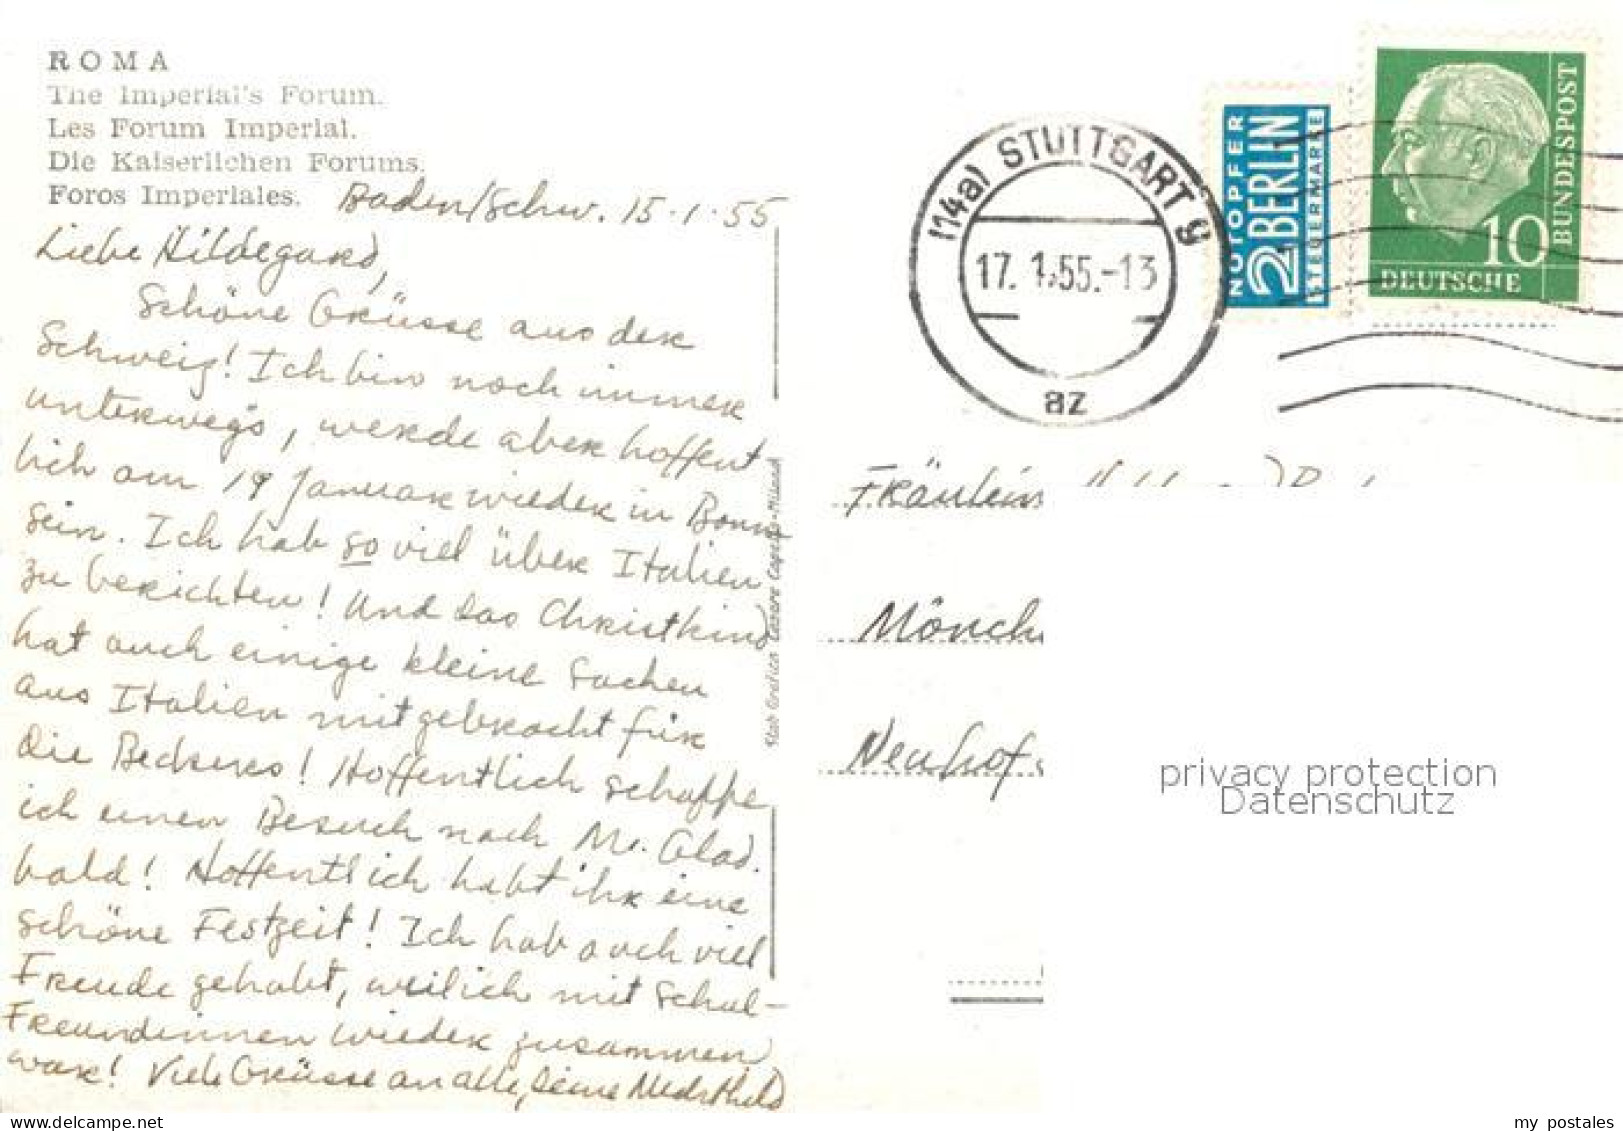 ROMA
The Imperial's Forum.
Les Forum Imperial.
Die Kaiserlichen Forums.
Foros Imperiales.
Baden/Schw. 15.1.55
Liebe Hildegard,
Schöne Grüsse aus der
Schweiz! Ich bin noch immer
unterwegs, werde aber hoffent-
lich am 19 Januar wieder in Bonn
sein. Ich hab so viel über Italien
zu berichten! Und das Christkind
hat auch einige kleine Sachen
aus Italien mitgebracht für
die Beckers! Hoffentlich schaffe
ich einen Besuch nach M. Glad.
bald! Hoffentlich habt ihr eine
schöne Festzeit! Ich hab auch viel
Freude gehabt, weil ich mit Schul-
Freundinnen wieder zusammen
war! Viele Grüsse an alle, Deine
Stab Grafico Cesare Capello-Milano
(14a) STUTTGART 9
17. 1.55.-13
az
NOTOPFER
2 BERLIN
STEUERMARKE
10
DEUTSCHE
BUNDESPOST
Fräulein
Mönch
Neuhof
privacy protection
Datenschutz
my postales